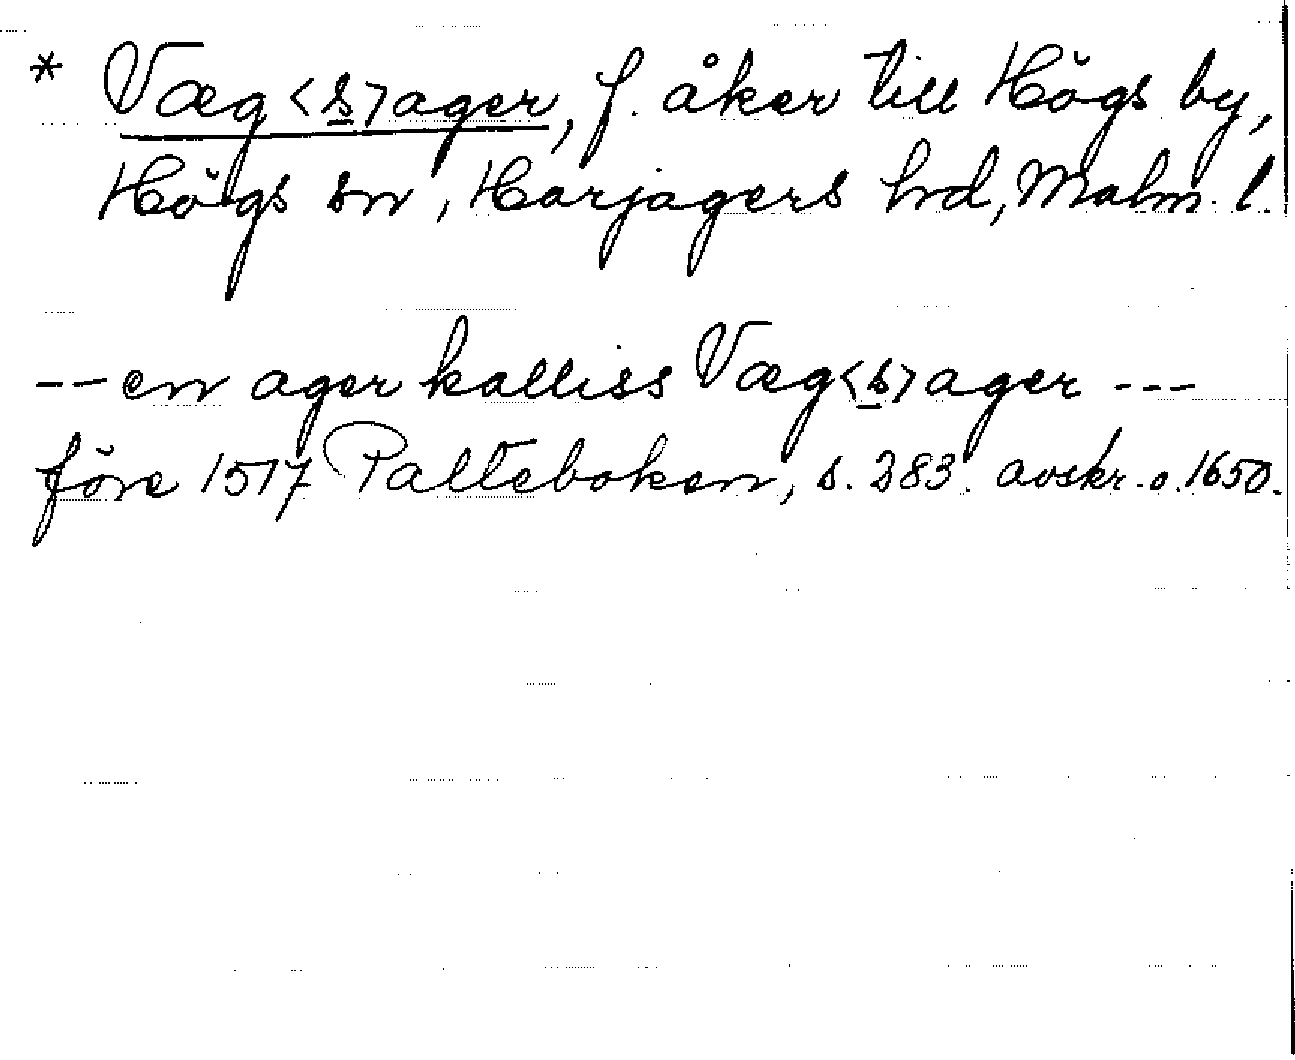 * Væg<s>ager, f. åker till Högs by,
Högs sn, Harjagers hrd, Malm. l.
-- en ager kalliss Væg<s>ager ---
före 1517 Palteboken, s. 383. avskr. o. 1650.